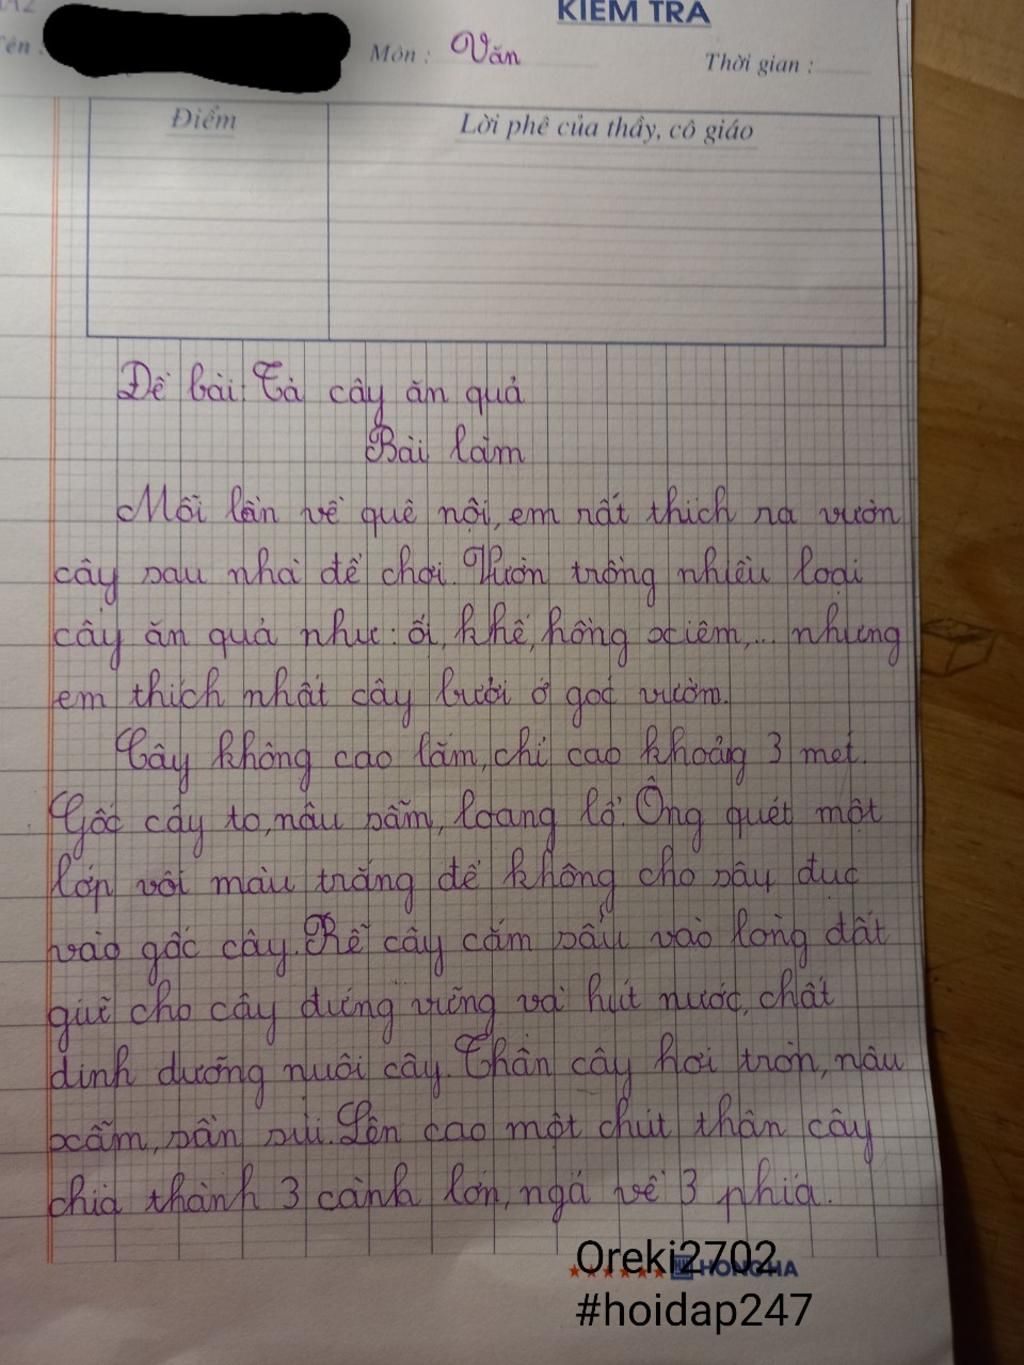 A2
KIỂM TRA
Tên :
Môn : Văn
Thời gian :
Điểm
Lời phê của thầy, cô giáo
Đề bài Tả cây ăn quả
Bài làm
Mỗi lần về quê nội, em rất thích ra vườn
cây sau nhà để chơi. Vườn trồng nhiều loại
cây ăn quả như: ổi, khế, hồng xiêm,... nhưng
em thích nhất cây bưởi ở góc vườn.
Cây không cao lắm, chỉ cao khoảg 3 mét.
Gốc cây to, nâu sẫm, loang lổ. Ông quét một
lớp vôi màu trắng để không cho sâu đục
vào gốc cây. Rễ cây cắm sâu vào lòng đất
giữ cho cây đứng vững và hút nước, chất
dinh dưỡng nuôi cây. Thân cây hơi tròn, nâu
xẫm, sần sùi. Lên cao một chút thân cây
chia thành 3 cành lớn, ngả về 3 phía.
HONGHA
Oreki2702
#hoidap247